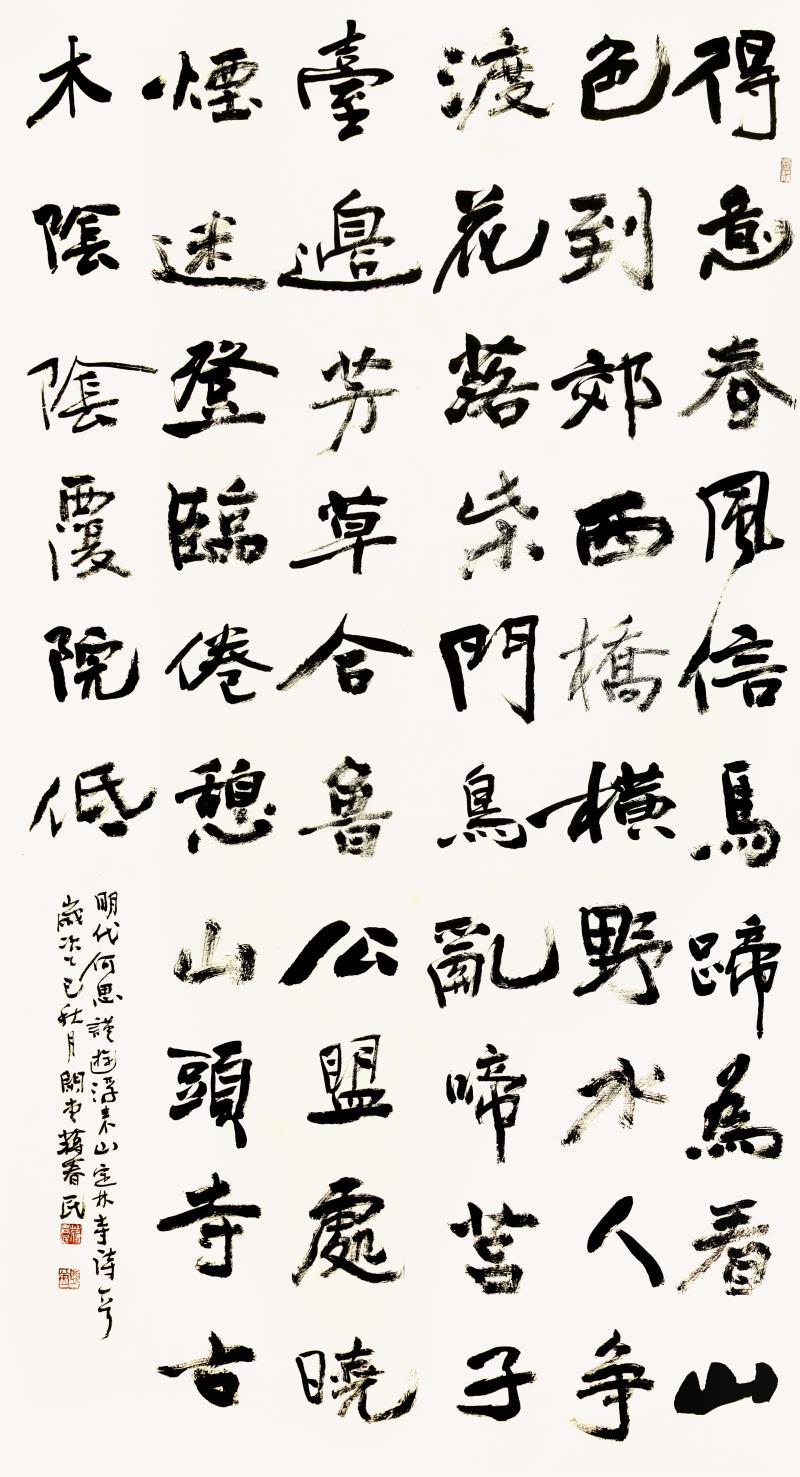 得意春風信馬蹄為看山
色到郊西橋橫野水人爭
渡花落柴門鳥亂啼莒子
臺邊芳草合魯公盟處曉
煙迷登臨倦憩山頭寺古
木陰陰覆院低
明代何思謹遊浮來山定林寺詩一首
歲次乙巳秋月蔣春民